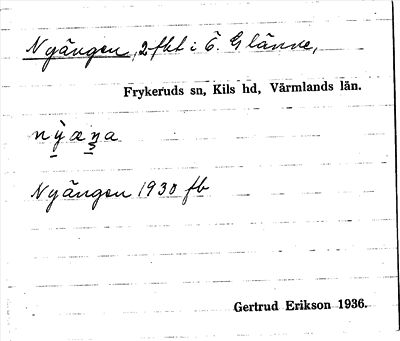 Nyängen, 2 fkt i Ö. Glänne,
Frykeruds sn, Kils hd, Värmlands län.
nỳæŋa
Nyängen 1930 fb
Gertrud Erikson 1936.